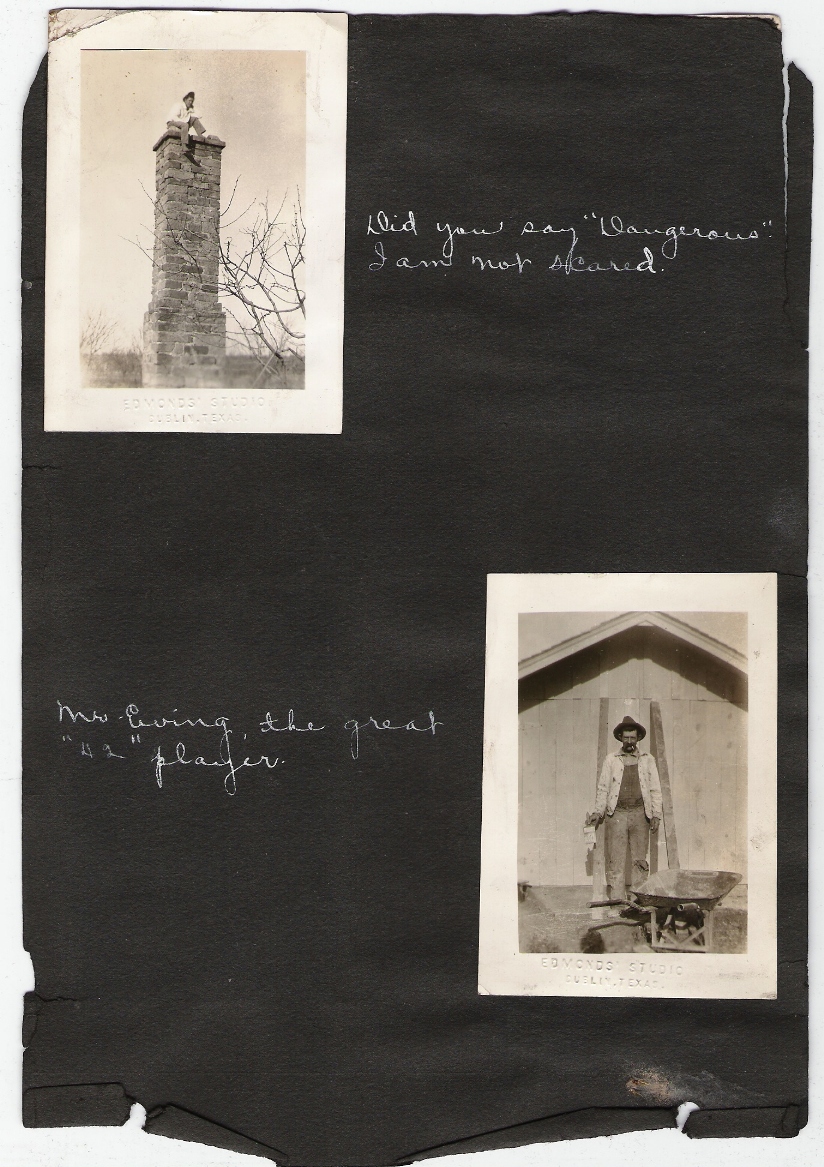 EDMONDS' STUDIO
DUBLIN, TEXAS.
Did you say "Dangerous"
I am not scared.
Mr. Ewing, the great
"42" player.
EDMONDS' STUDIO
DUBLIN, TEXAS.